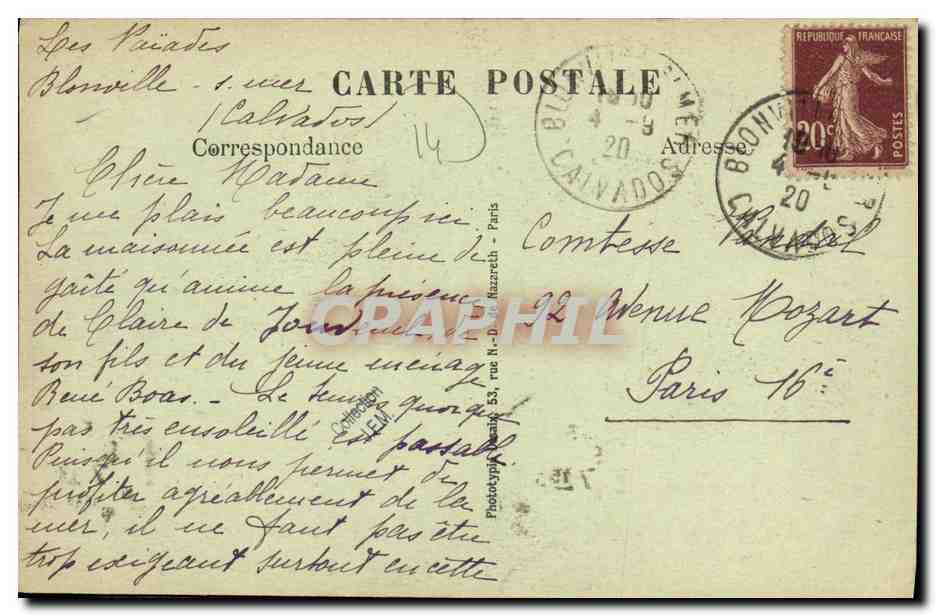 Les Naïades
Blonville - s. mer
(Calvados)
CARTE POSTALE
Correspondance
Adresse
14
REPUBLIQUE FRANÇAISE
20c
POSTES
BLONVILLE-S-MER
4 - 9
20
CALVADOS
BLONVILLE
4 - 9
20
CALVADOS
Chère Madame
Je me plais beaucoup ici
La maisonnée est pleine de
gaîté qu'anime la présence
de Claire de Jouvenel de
son fils et du jeune ménage
René Boas. - Le temps quoique
pas très ensoleillé est passable
Puisqu'il nous permet de
profiter agréablement de la
mer, il ne faut pas être
trop exigeant surtout en cette
Comtesse
92 Avenue Mozart
Paris 16e
Phototypie 53, rue N.-D. de Nazareth - Paris
Collection
CPAPHIL